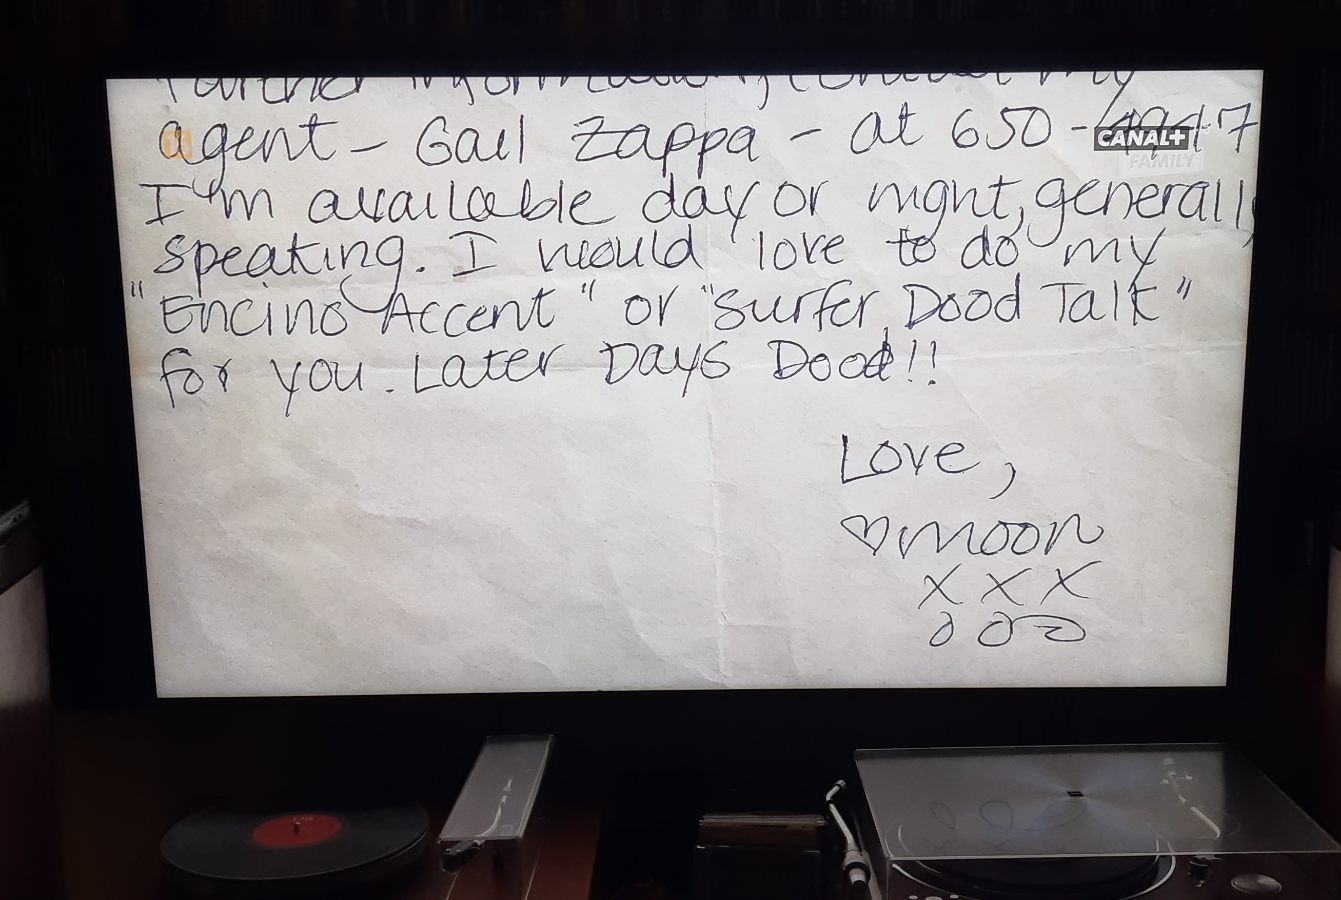 further information, contact my
agent - Gail Zappa - at 650-4947
CANAL+
FAMILY
I'm available day or night, generally
speaking. I would love to do my
"Encino Accent" or "Surfer Dood Talk"
for you. Later Days Dood!!
Love,
♡moon
X X X
O O O